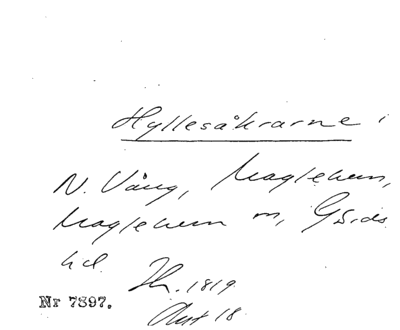 Hyllesåkrarne i
N. Vång, Maglehem,
Maglehem sn, Gärds
hd. Th. 1819.
Akt 18
Nr 7897.